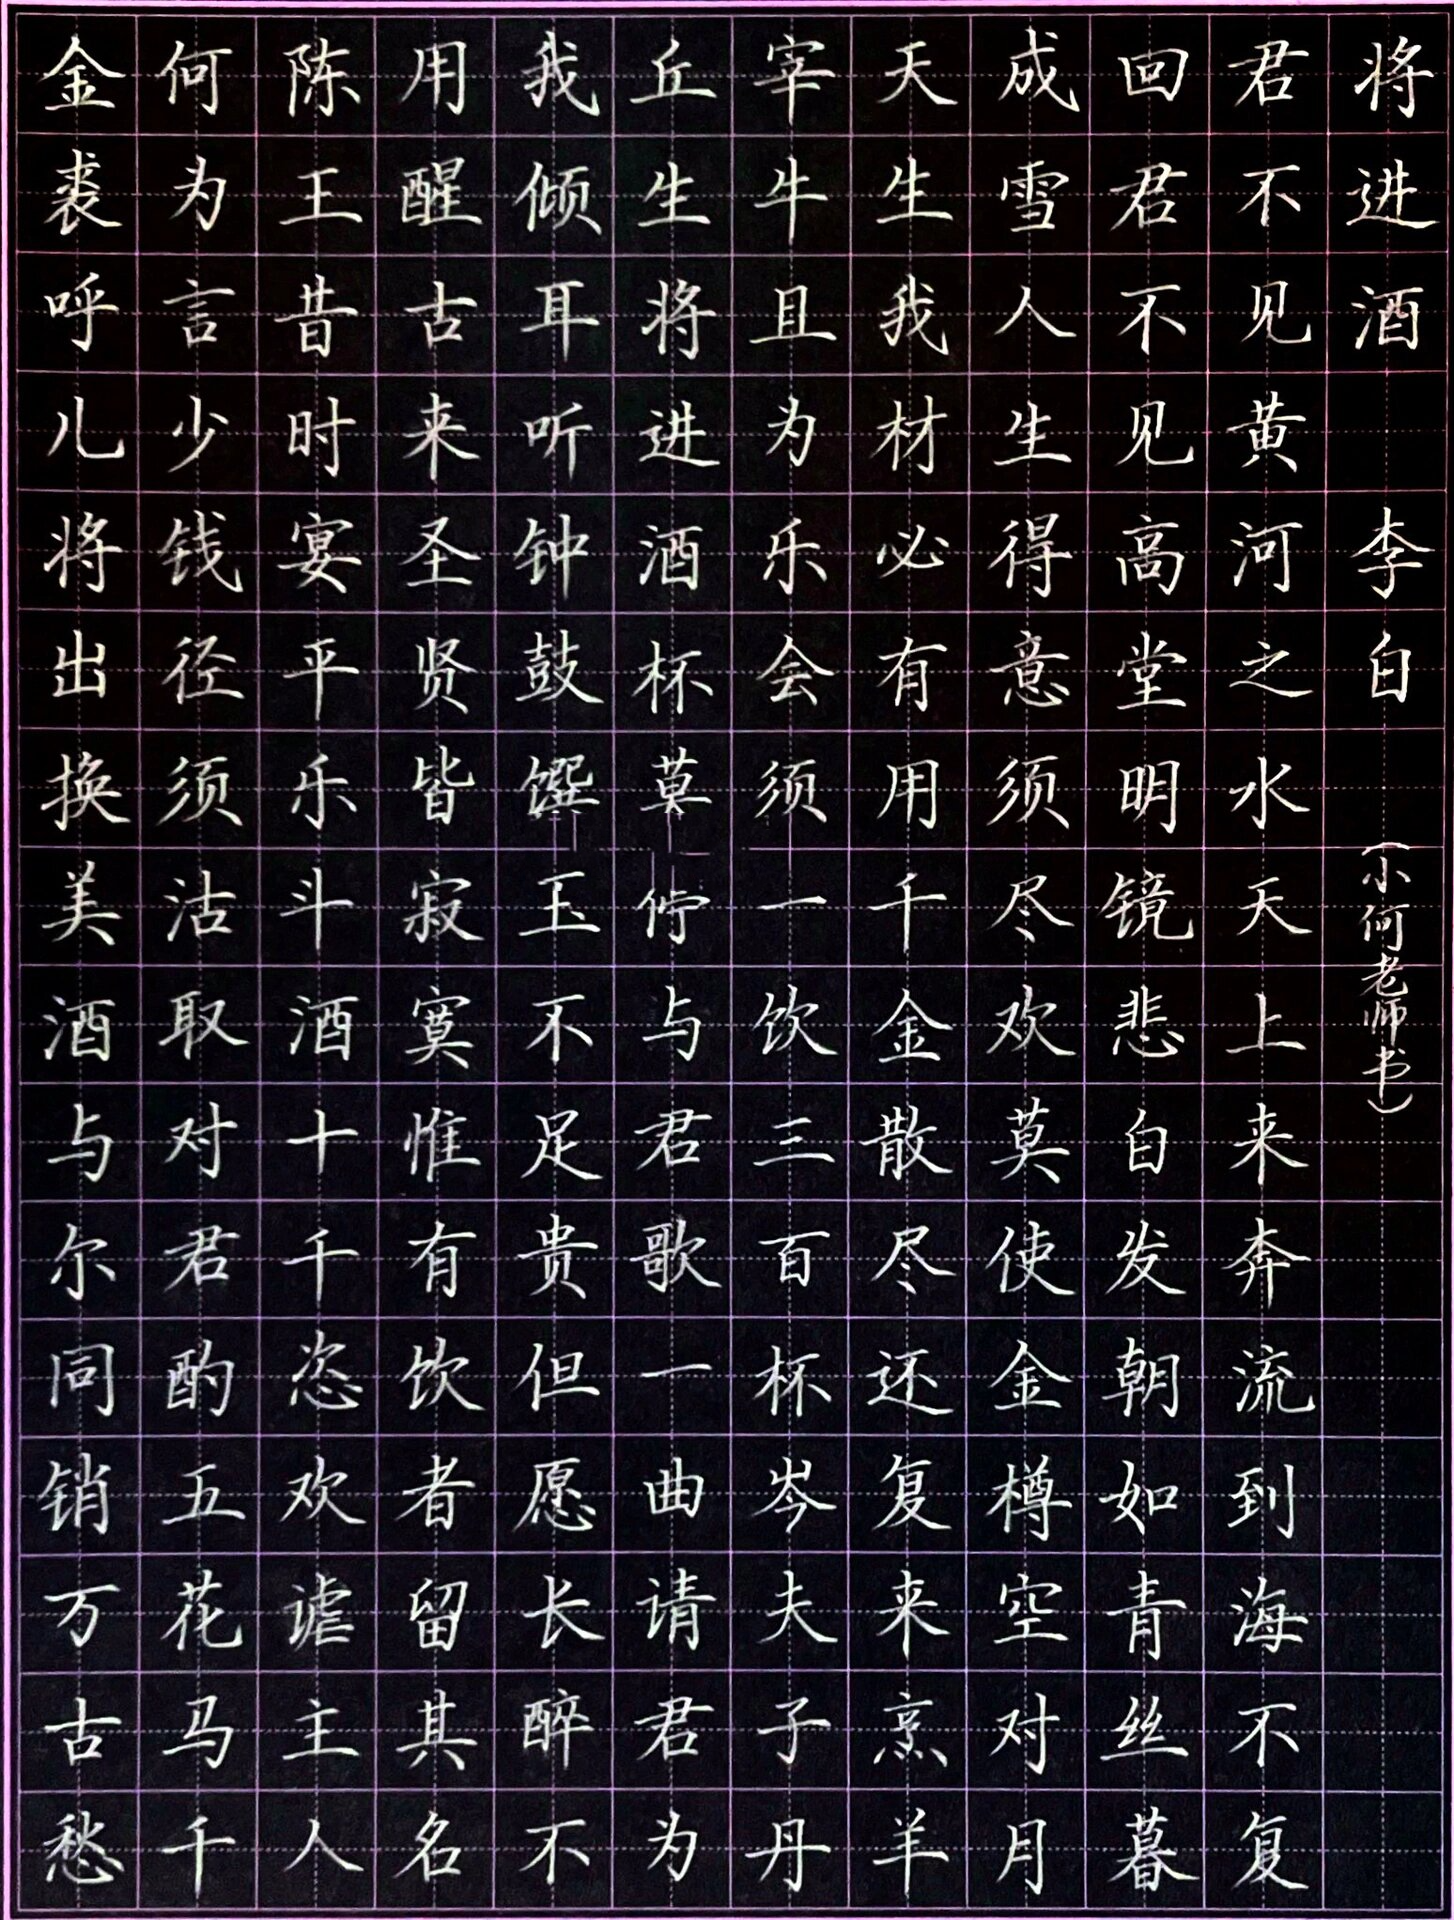 将进酒 李白 (小何老师书)
君不见黄河之水天上来奔流到海不复
回君不见高堂明镜悲白发朝如青丝暮
成雪人生得意须尽欢莫使金樽空对月
天生我材必有用千金散尽还复来烹羊
宰牛且为乐会须一饮三百杯岑夫子丹
丘生将进酒杯莫停与君歌一曲请君为
我倾耳听钟鼓馔玉不足贵但愿长醉不
用醒古来圣贤皆寂寞惟有饮者留其名
陈王昔时宴平乐斗酒十千恣欢谑主人
何为言少钱径须沽取对君酌五花马千
金裘呼儿将出换美酒与尔同销万古愁